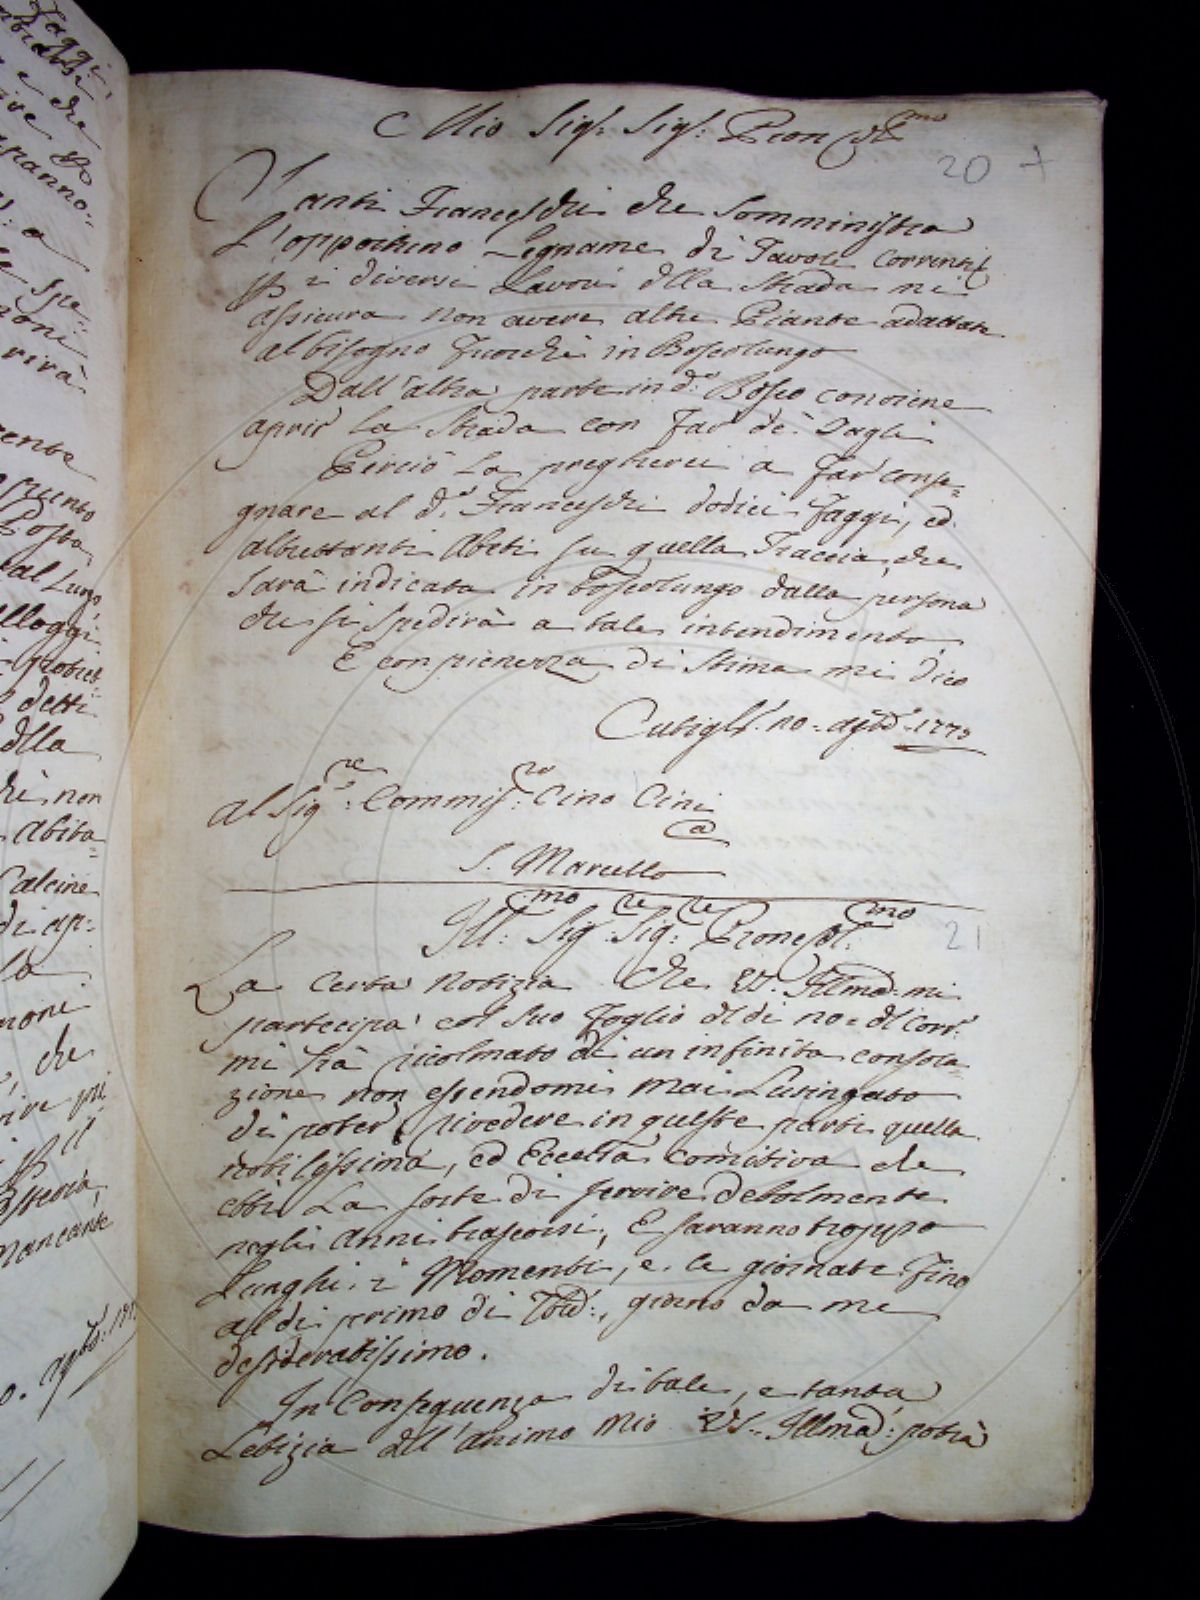 Mio Sig:r Sig:r Pron Col:mo
20 +
Santi Franceschi che somministra
l'opportuno Legname di Tavole Correnti &
p i diversi Lavori dlla Strada mi
assicura non avere altre Piante adattate
al bisogno fuorchè in Boscolungo
Dall'altra parte in d:o Bosco conviene
aprir la Strada con far de' Tagli
Perciò La pregherei a far conse=
gnare al d:o Franceschi dodici Faggi, ed
altrettanti Abeti su quella Traccia, che
sarà indicata in Boscolungo dalla persona
che si spedirà a tale intendimento
E con pienezza di stima mi dico
Cutigl:o 20 = agto 1773
Al Sig:re Commiss:rio Cino Cini
a
S. Marcello
Ill:mo Sig:re Sig:re Prone Col:mo
21
La certa notizia che VS. Illma mi
partecipa col suo foglio dl di 20 = dl corr:e
mi hà ricolmato di un infinita consola
zione non essendomi mai Lusingato
di poter rivedere in queste parti quella
nobilissima, ed Eccelsa comitiva che
ebbi La sorte di servire debolmente
negli anni trascorsi, E saranno troppo
Lunghi i Momenti, e le giornate fino
al di primo di 7bre:, giorno da me
desideratissimo.
In Conseguenza di tale, e tanta
Letizia dll'animo mio VS. Illma: potrà